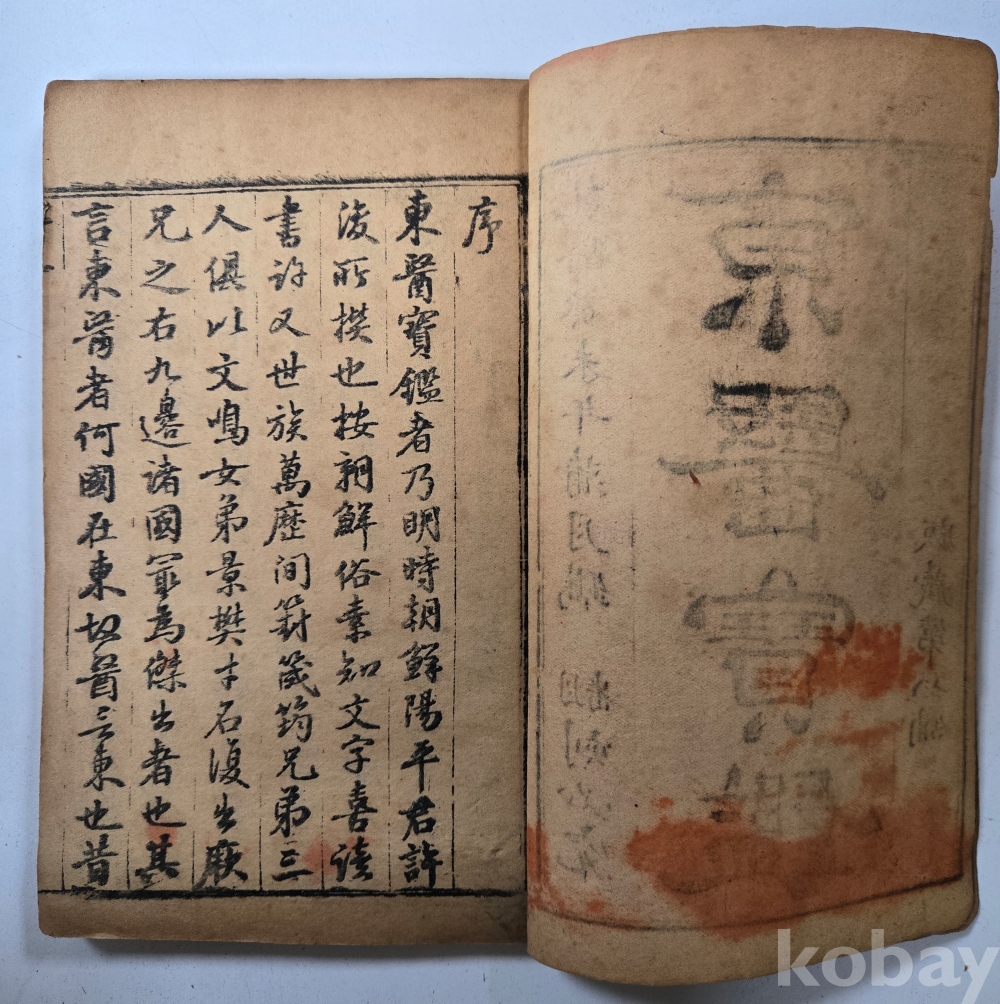 東醫寶鑑
序
東醫寶鑑者乃明時朝鮮陽平君許
浚所撰也按朝鮮俗素知文字喜讀
書許又世族萬歷間篈筬筠兄弟三
人俱以文鳴女弟景樊才名復出厥
兄之右九邊諸國冣為傑出者也其
言東醫者何國在東故醫言東也昔
kobay